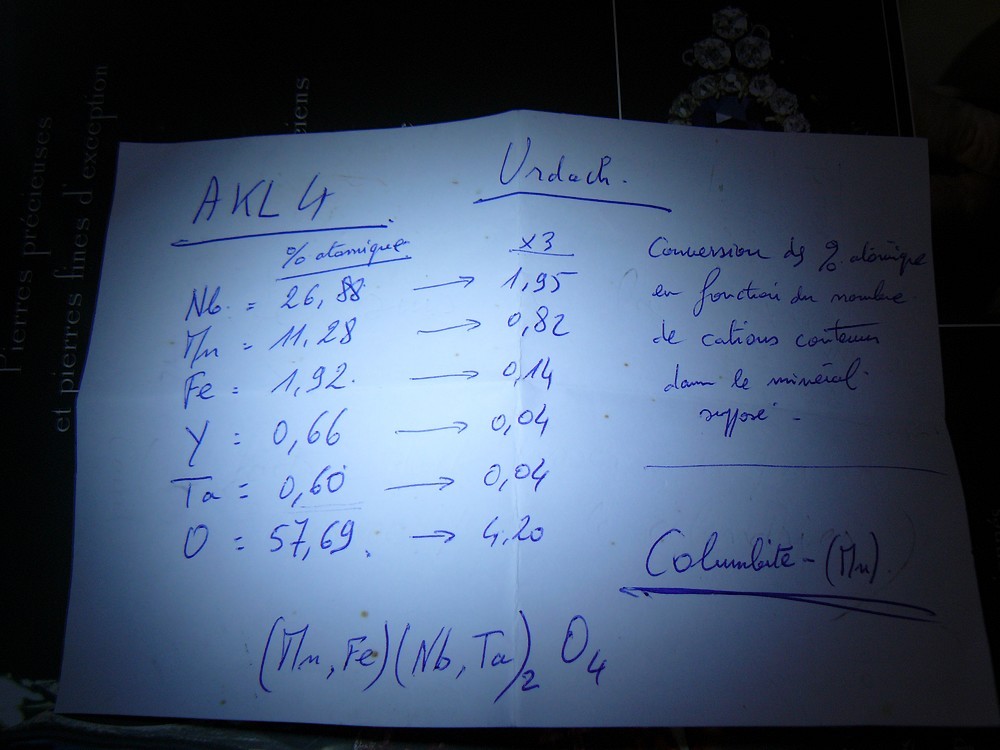 Pierres précieuses
et pierres fines d'exception
ciens
AKL 4
Urdach.
% atomique
x3
Nb. = 26,88 → 1,95
Mn = 11,28 → 0,82
Fe = 1,92. → 0,14
Y = 0,66 → 0,04
Ta = 0,60 → 0,04
O = 57,69. → 4,20
Conversion des % atomique
en fonction du nombre
de cations contenus
dans le minéral
supposé -
Columbite - (Mn)
(Mn, Fe) (Nb, Ta)2 O4